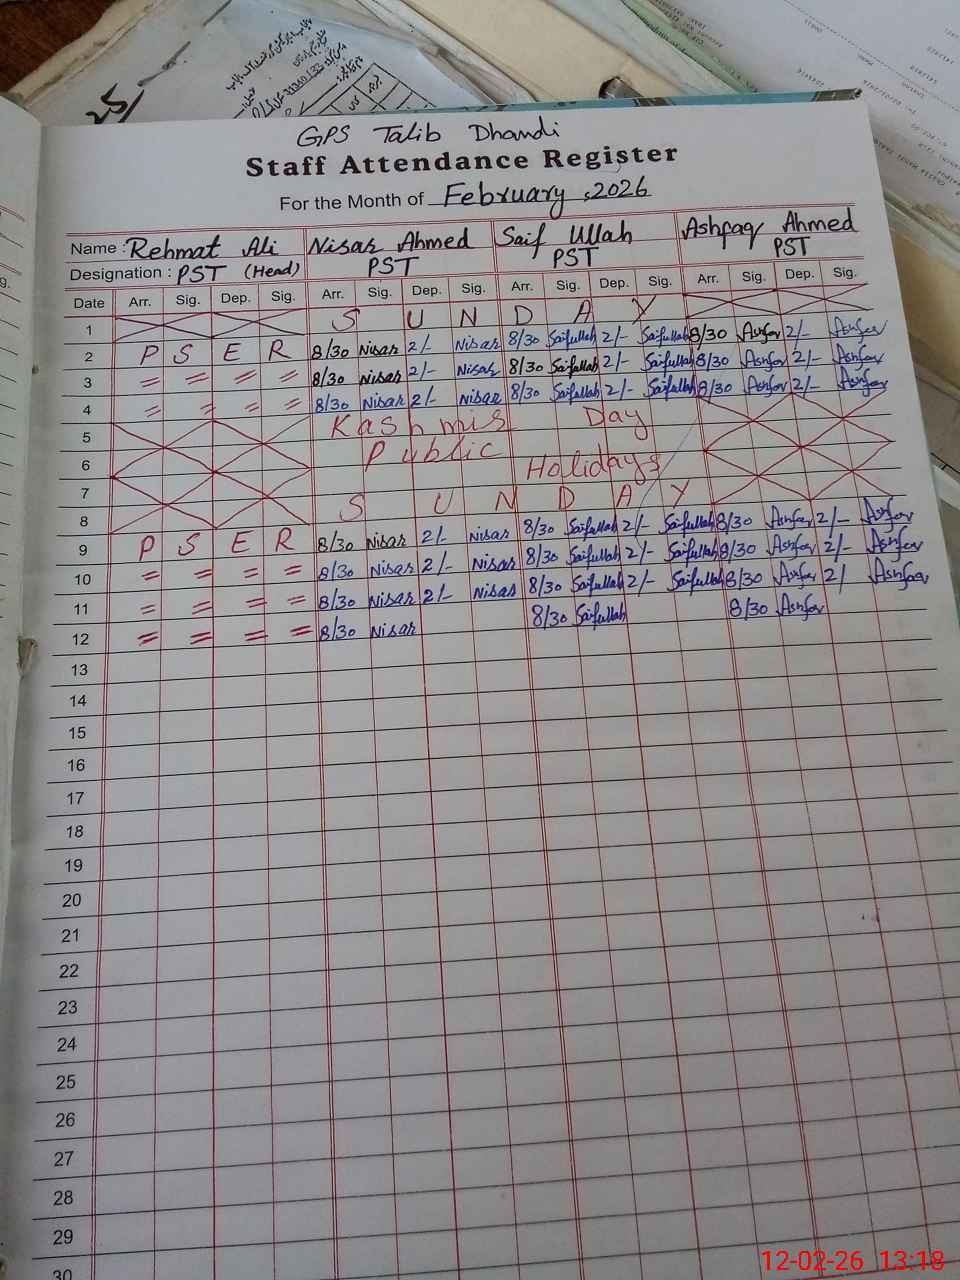 GPS Talib Dhandi
Staff Attendance Register
For the Month of February, 2026
Name : Rehmat Ali Nisar Ahmed Saif Ullah Ashfaq Ahmed
Designation : PST (Head) PST PST PST
Date Arr. Sig. Dep. Sig. Arr. Sig. Dep. Sig. Arr. Sig. Dep. Sig. Arr. Sig. Dep. Sig.
1 S U N D A Y
2 P S E R 8/30 Nisar 2/- Nisar 8/30 Saifullah 2/- Saifullah 8/30 Ashfaq 2/- Ashfaq
3 = = = = 8/30 Nisar 2/- Nisar 8/30 Saifullah 2/- Saifullah 8/30 Ashfaq 2/- Ashfaq
4 = = = = 8/30 Nisar 2/- Nisar 8/30 Saifullah 2/- Saifullah 8/30 Ashfaq 2/- Ashfaq
5 Kashmir Day
6 Public Holidays
7
8 S U N D A Y
9 P S E R 8/30 Nisar 2/- Nisar 8/30 Saifullah 2/- Saifullah 8/30 Ashfaq 2/- Ashfaq
10 = = = = 8/30 Nisar 2/- Nisar 8/30 Saifullah 2/- Saifullah 8/30 Ashfaq 2/- Ashfaq
11 = = = = 8/30 Nisar 2/- Nisar 8/30 Saifullah 2/- Saifullah 8/30 Ashfaq 2/ Ashfaq
12 = = = = 8/30 Nisar 8/30 Saifullah 8/30 Ashfaq
13
14
15
16
17
18
19
20
21
22
23
24
25
26
27
28
29
30
12-02-26 13:18